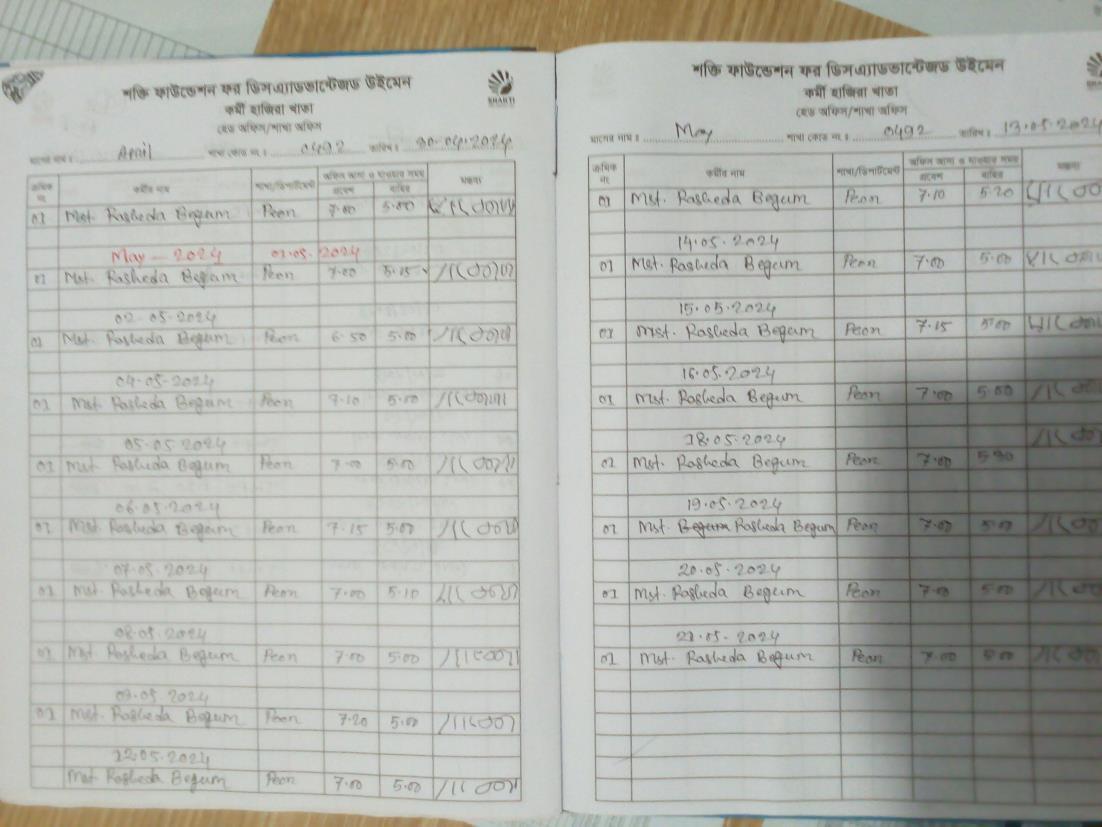 শক্তি ফাউন্ডেশন ফর ডিসএ্যাডভান্টেজড উইমেন
কর্মী হাজিরা খাতা
হেড অফিস/শাখা অফিস
SHAKTI
মাসের নাম ঃ April শাখা কোড নং ঃ 0492 তারিখ ঃ 30.04.2024
ক্রমিক নং কর্মীর নাম শাখা/ডিপার্টমেন্ট অফিস আসা ও যাওয়ার সময় মন্তব্য
প্রবেশ বাহির
01 Mst. Rasheda Begum Peon 7.00 5.00
May - 2024 01.05.2024
01 Mst. Rasheda Begum Peon 7.00 5.15
02.05.2024
01 Mst. Rasheda Begum Peon 6.50 5.00
04.05.2024
01 Mst. Rasheda Begum Peon 7.10 5.00
05.05.2024
01 Mst. Rasheda Begum Peon 7.00 5.00
06.05.2024
01 Mst. Rasheda Begum Peon 7.15 5.00
07.05.2024
01 Mst. Rasheda Begum Peon 7.00 5.10
08.05.2024
01 Mst. Rasheda Begum Peon 7.00 5.00
09.05.2024
01 Mst. Rasheda Begum Peon 7.20 5.00
12.05.2024
Mst. Rasheda Begum Peon 7.00 5.00
শক্তি ফাউন্ডেশন ফর ডিসএ্যাডভান্টেজড উইমেন
কর্মী হাজিরা খাতা
হেড অফিস/শাখা অফিস
মাসের নাম ঃ May শাখা কোড নং ঃ 0492 তারিখ ঃ 13.05.2024
ক্রমিক নং কর্মীর নাম শাখা/ডিপার্টমেন্ট অফিস আসা ও যাওয়ার সময় মন্তব্য
প্রবেশ বাহির
01 Mst. Rasheda Begum Peon 7.10 5.20
14.05.2024
01 Mst. Rasheda Begum Peon 7.00 5.00
15.05.2024
01 Mst. Rasheda Begum Peon 7.15 5.00
16.05.2024
01 Mst. Rasheda Begum Peon 7.00 5.00
18.05.2024
01 Mst. Rasheda Begum Peon 7.00 5.30
19.05.2024
01 Mst. Begum Rasheda Begum Peon 7.00 5.00
20.05.2024
01 Mst. Rasheda Begum Peon 7.00 5.00
21.05-2024
01 Mst. Rasheda Begum Peon 7.00 5.00